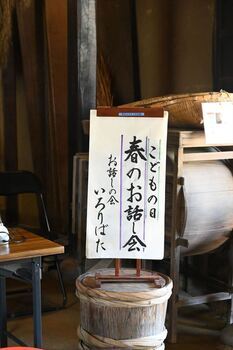 こどもの日
春のお話し会
お話しの会
いろりばた